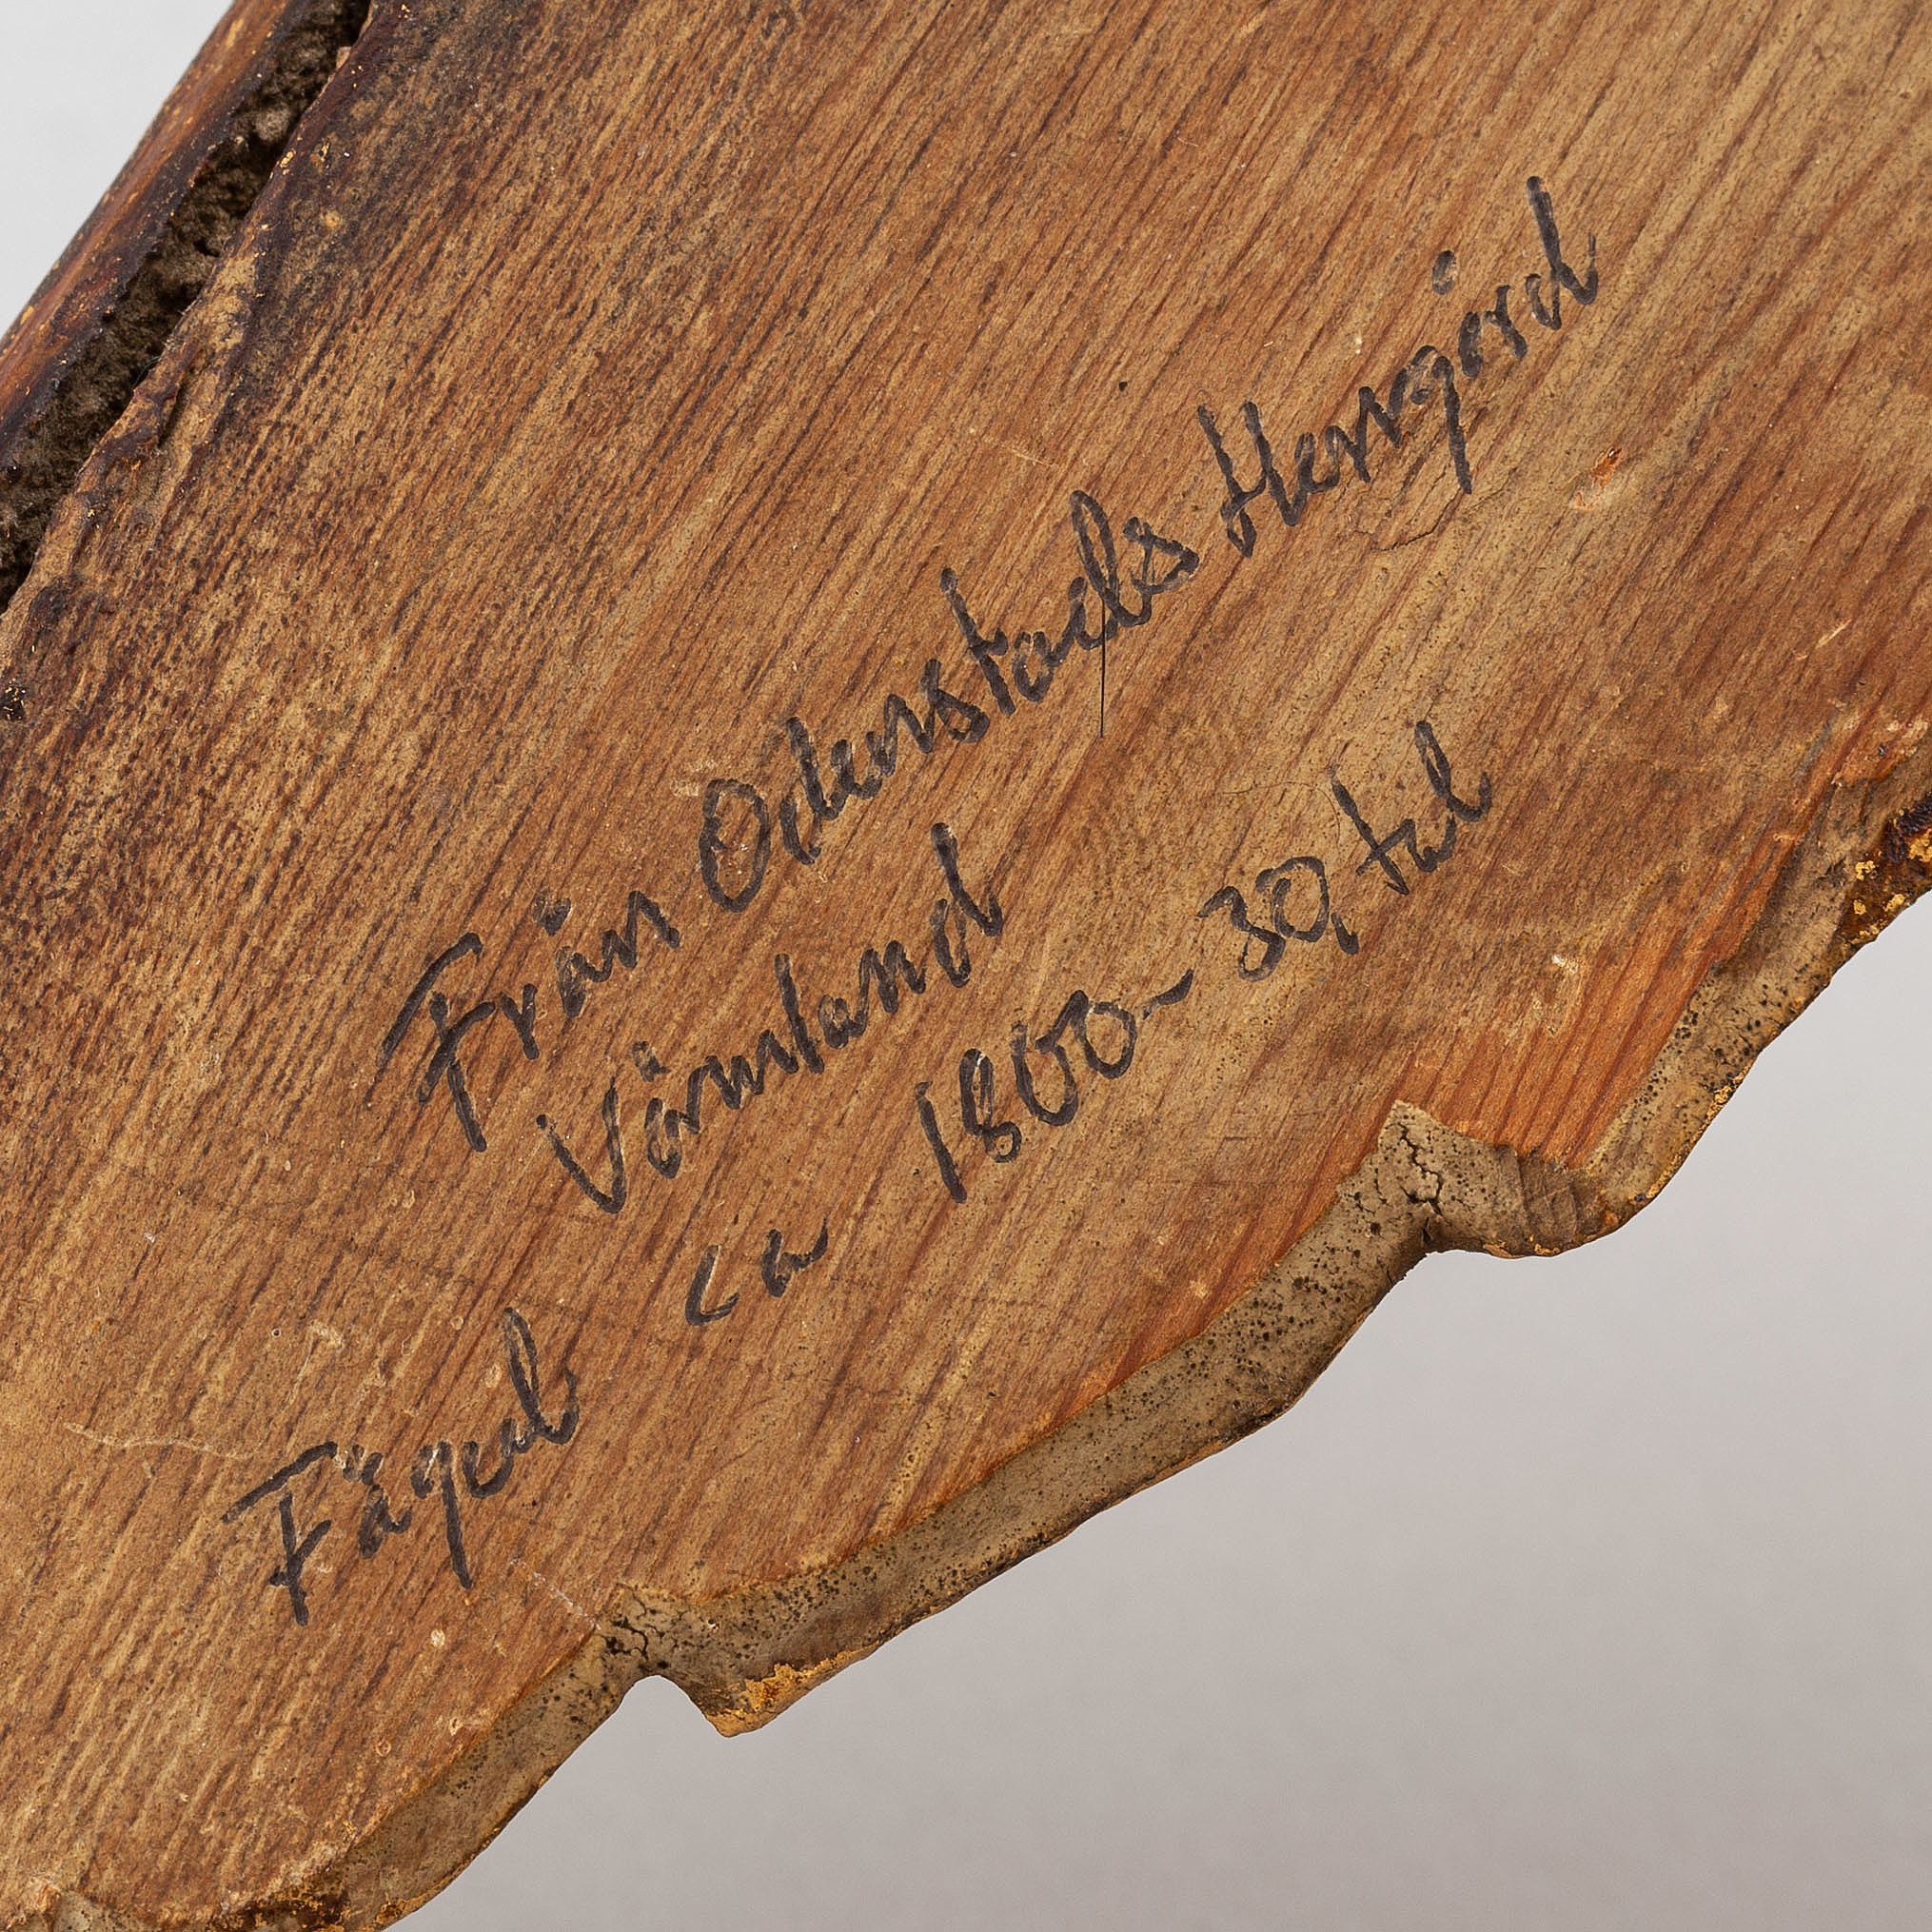 Från Odenstads Herrgård
Värmland
ca 1800-30, tal
Fågel